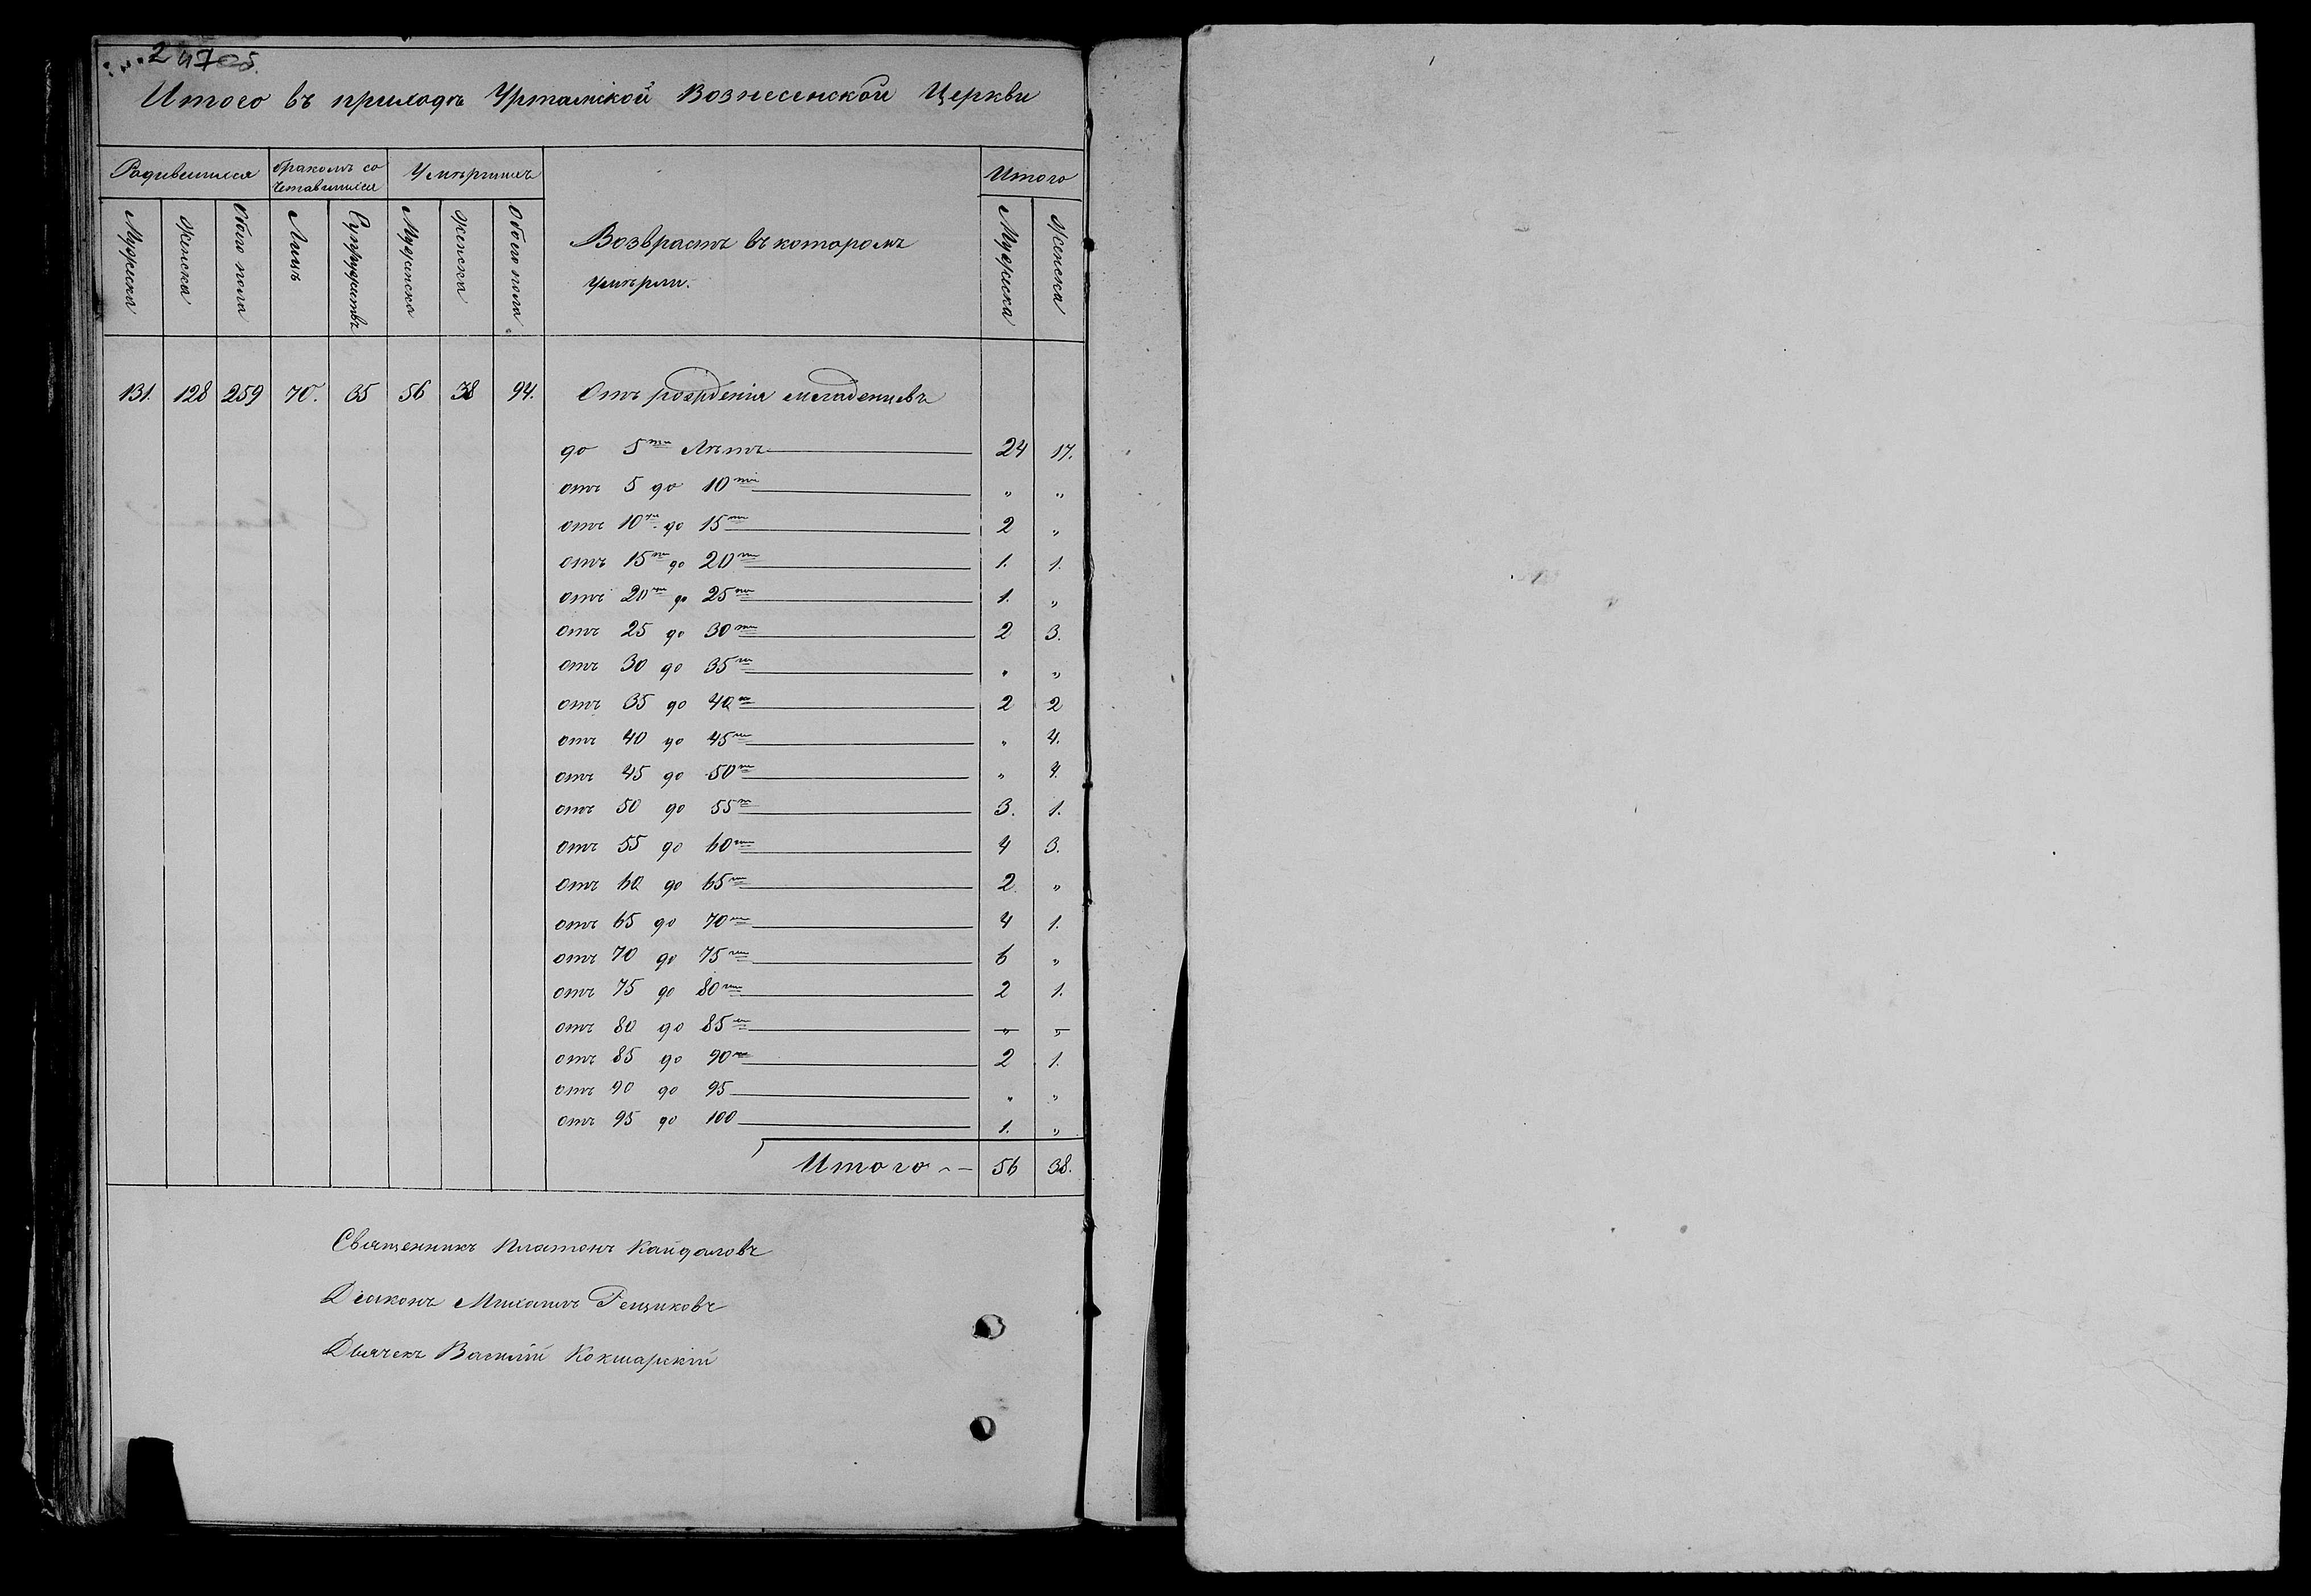 247об.
Итого въ приходѣ Уртамской Вознесенской Церкви
Родившихся бракомъ со Умершихъ Итого
четавшихся
Мужеска Женска Обоего пола Лицъ Супружествъ Мужеска Женска Обоего пола Возврастъ въ которомъ Мужеска Женска
умѣрли.
131. 128 259 70. 35 56 38 94. Отъ рожденія младенцевъ
до 5ти Лѣтъ 24 17.
отъ 5 до 10ти „ „
отъ 10ти до 15ти 2 „
отъ 15ти до 20ти 1. 1.
отъ 20ти до 25ти 1. „
отъ 25 до 30ти 2 3.
отъ 30 до 35ти „ „
отъ 35 до 40 2 2
отъ 40 до 45ти „ 4.
отъ 45 до 50ти „ 4.
отъ 50 до 55ти 3. 1.
отъ 55 до 60ти 4 3.
отъ 60 до 65ти 2. „
отъ 65 до 70ти 4 1.
отъ 70 до 75ти 6 „
отъ 75 до 80ти 2 1.
отъ 80 до 85ти „ „
отъ 85 до 90то 2 1.
отъ 90 до 95 „ „
отъ 95 до 100 1. „
Итого 56 38.
Священникъ Платонъ Кайдаловъ
Діаконъ Михаилъ Генциковъ
Дьячекъ Василій Кокшарскій